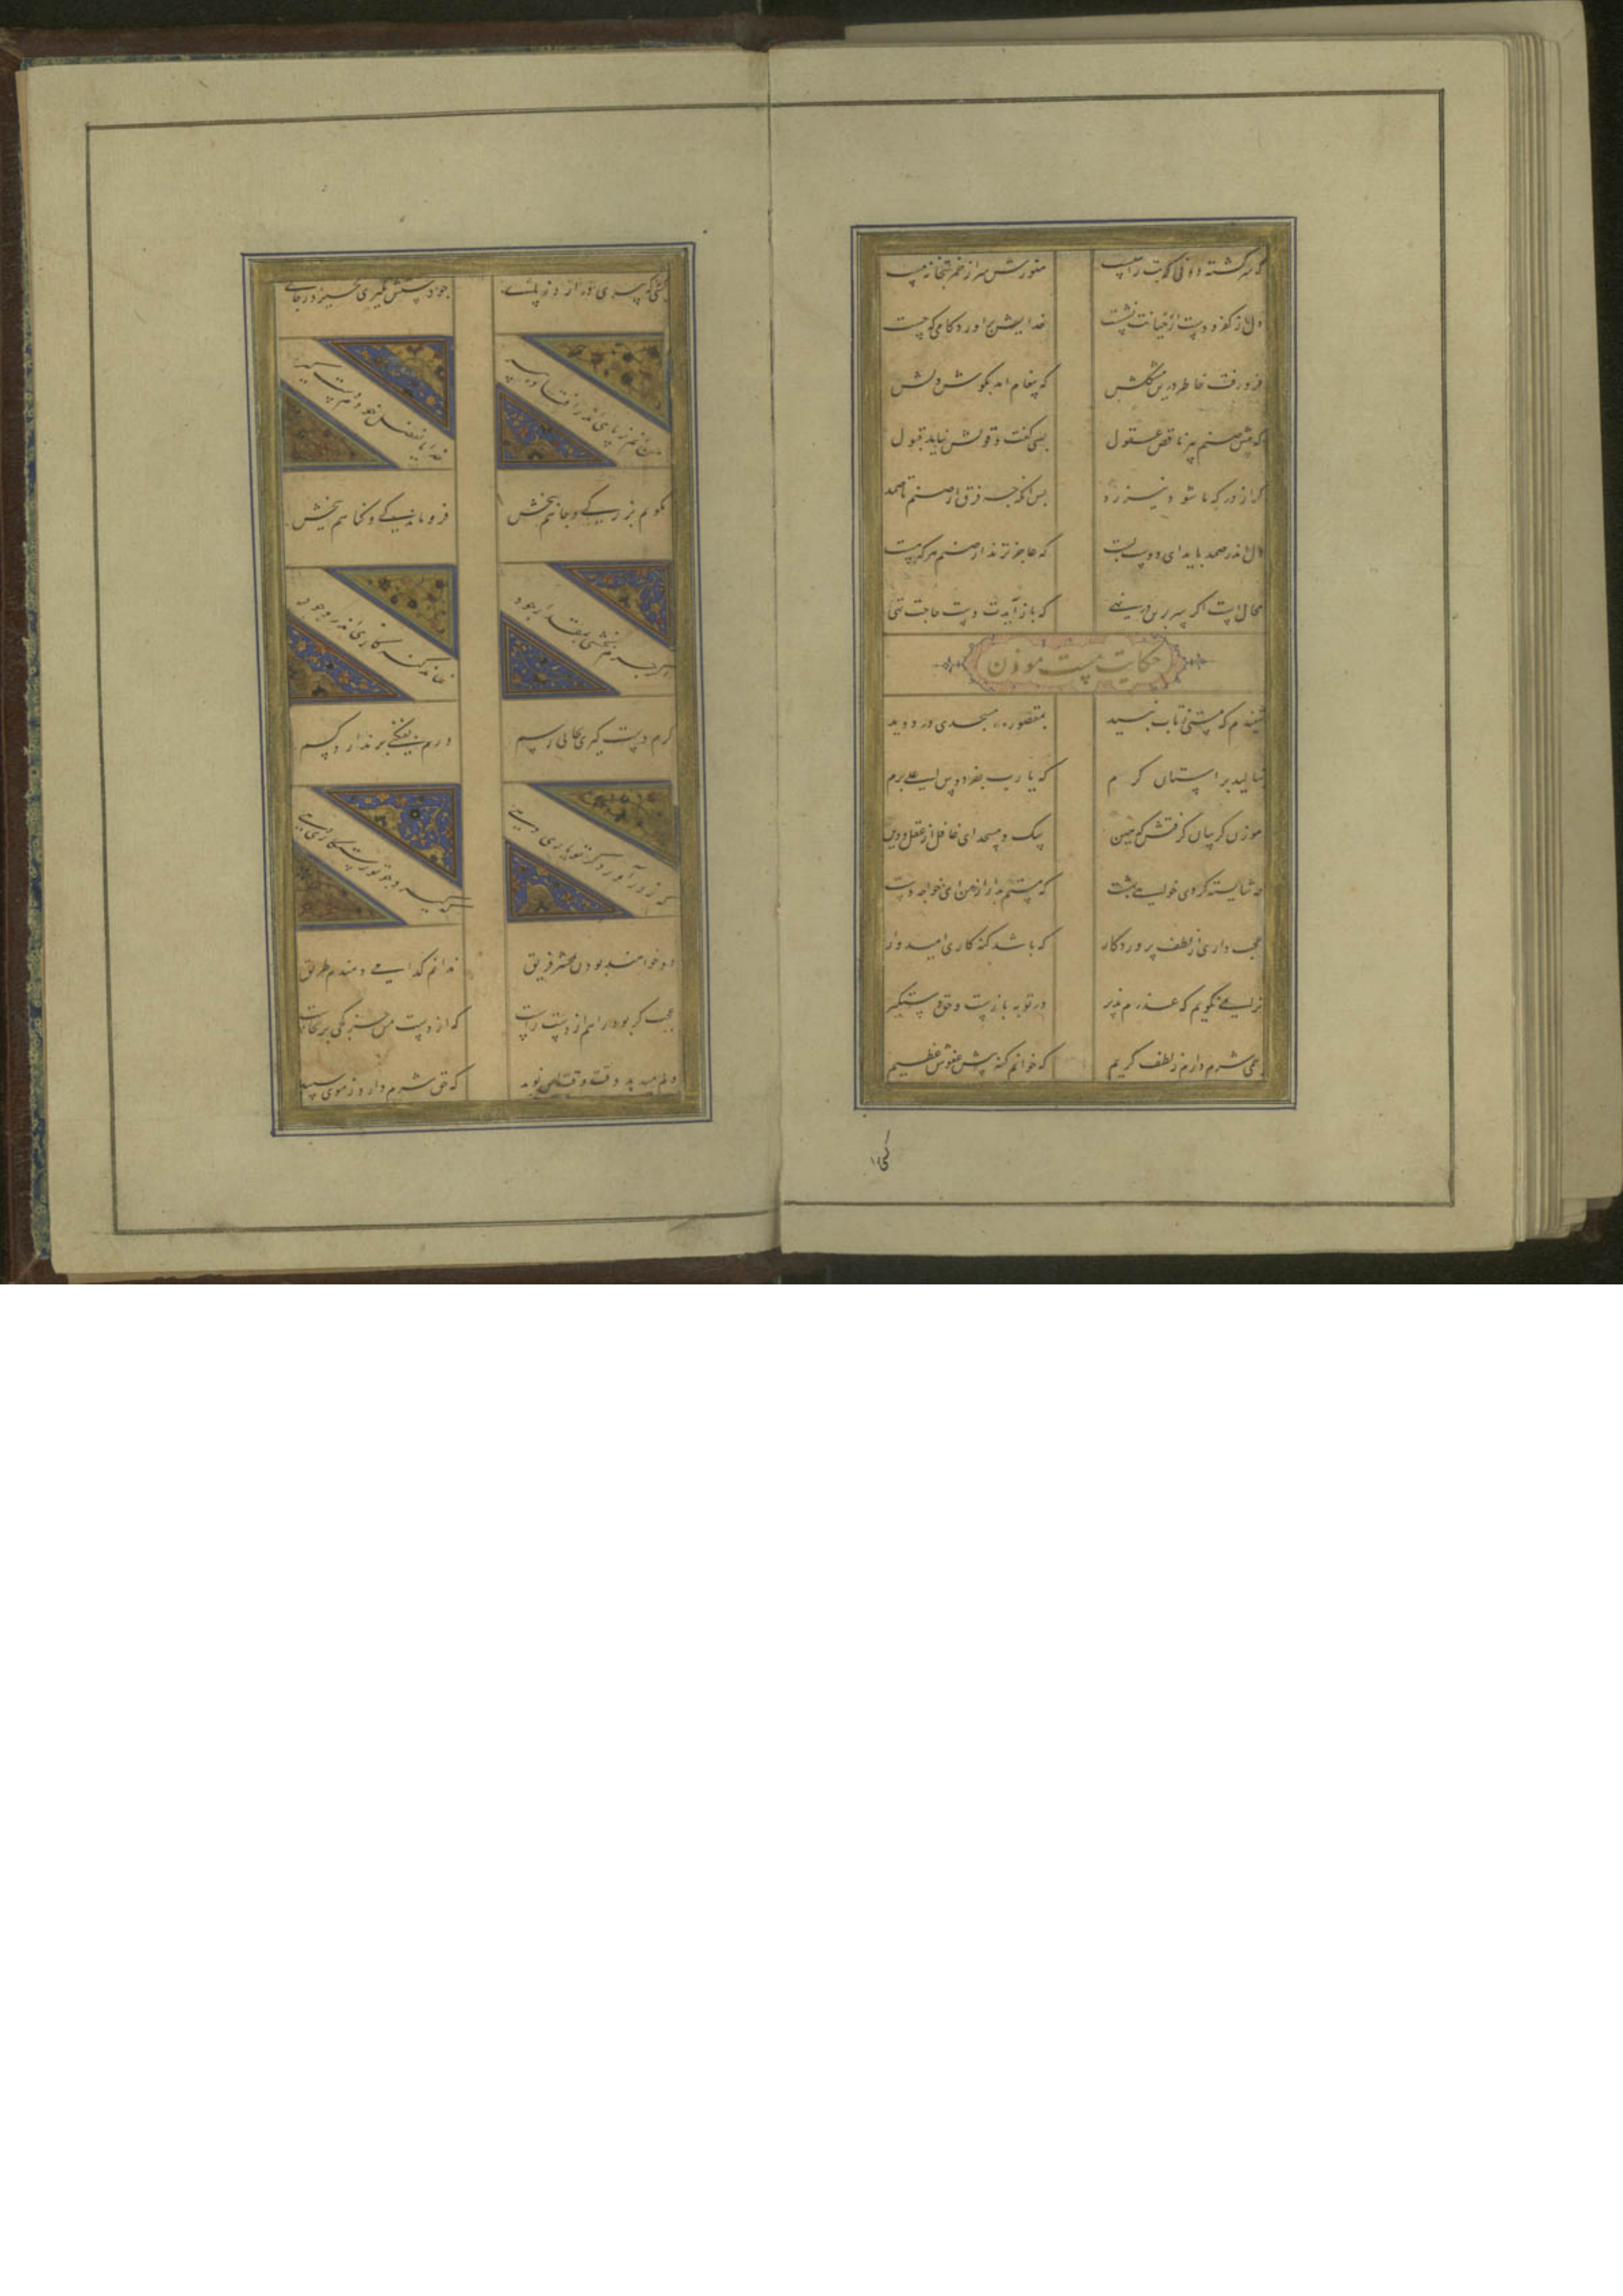 که سرگشته دون کو بت راست هنوزش سر از خمر بتخانه مست
دل از کفر و دست از خیانت نشست خدایش براورد کامی که جست
فرو رفت خاطر درین مشکلش که پیغام امد بکوش دلش
که پیش صنم پیر ناقص عقول بسی گفت و قولش نیاید قبول
گر از درکه ما شود نیز رد پس انکه چه فرق از صنم تا صمد
دل اندر صمد باید ای دوست بست که عاجزترند از صنم هر که هست
محال است اکر سر برین در نهی که باز آیدت دست حاجت تهی
حکایت مست موذن
شنیدم که مستی ز تاب نبید بمقصوره مسجدی در دوید
بنالید بر استان کرم که یا رب بفردوس اعلی برم
موذن کریبان کرفتش که هین سک و مسجد ای غافل از عقل و دین
چه شایسته کردی که خواهی بهشت
که مستم بدار از من ای خواجه دست
عجب داری از لطف پروردکار که باشد کنه کاری امیدوار
ترا می نکویم که عذرم پذیر در توبه بازست و حق دستکیر
همی شرم دارم ز لطف کریم که خوانم کنه پیش عفوش عظیم
کسی را
کسی را که پیری در آرد ز پای چو دستش نگیری نخیزد ز جای
من آنم ز پای اندر افتاده پیر خدایا بفضل خودم دست کیر
نکویم بزرگی و جاهم ببخش فروماندگی و کناهم ببخش
فرو رفته
کرم دست کیری بجایی رسم ورم بفکنی بر ندارد کسم
که زور آورد کر تو یاری دهی که کیرد چو تو رستکاری دهی
دو خواهند بودن بمحشر فریق ندانم کدامی دهندم طریق
عجب کر بود راهم از دست راست که از دست من جز کژی برنخاست
دلم میدهد وقت وقت این نوید که حق شرم دارد ز موی سپید